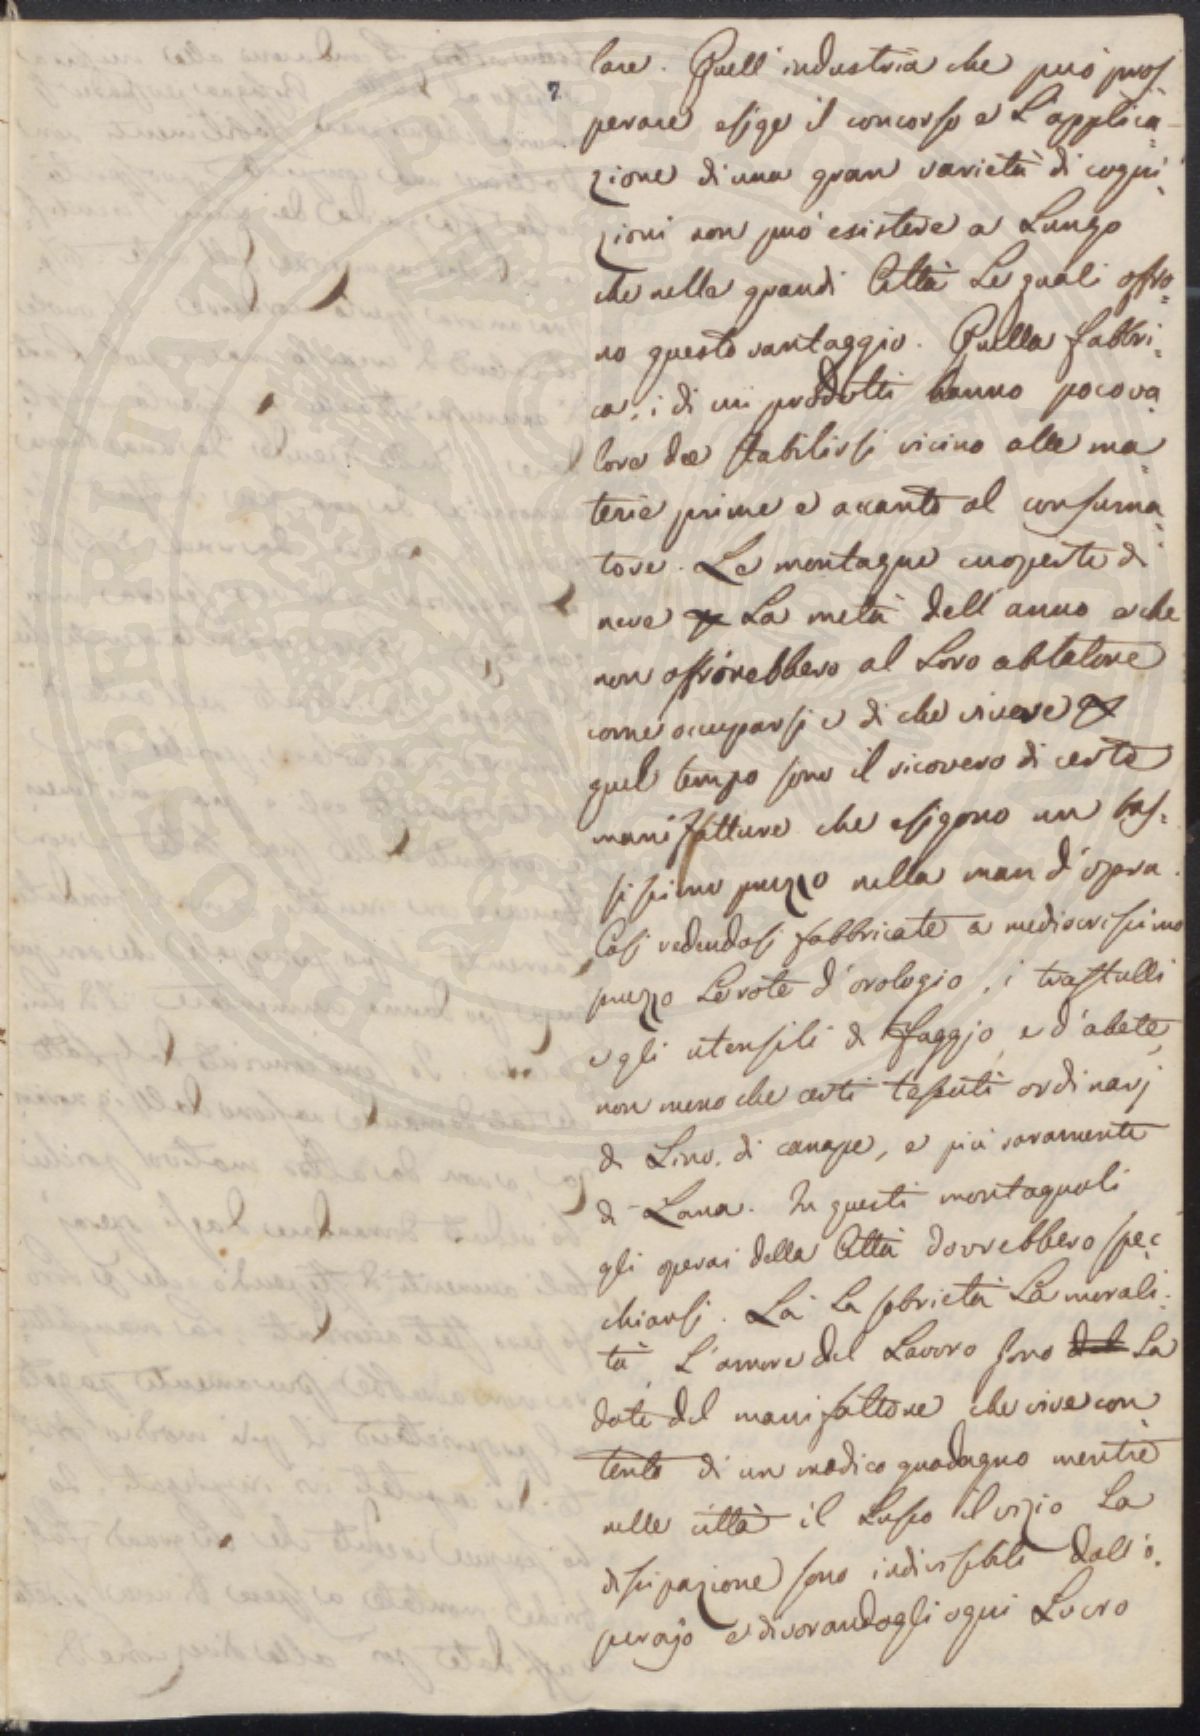 lare. Quell'industria che può pros-
perare esige il concorso e L'applica-
zione di una gran varietà di cogni-
zioni non può esistere a Lungo
che nelle grandi Città Le quali offro-
no questo vantaggio. Quella fabbri-
ca, i di cui prodotti hanno poco va-
lore dee stabilirsi vicino alle ma-
terie prime e accanto al consuma-
tore. Le montagne cuoperte di
neve La metà dell'anno e che
non offrirebbero al Loro abitatore
come occuparsi e di che vivere
quel tempo sono il ricovero di certe
manifatture che esigono un bas-
sissimo prezzo nella man d'opera.
Così vedendosi fabbricate a mediocrissimo
prezzo Le rote d'orologio, i trastulli
e gli utensili di faggio, e d'abete,
non meno che certi tessuti ordinarj
di Lino, di canape, e più raramente
di Lana. In questi montagnoli
gli operai della Città dovrebbero spec-
chiarsi. Là La sobrietà La morali-
tà L'amore del Lavoro sono La
dote del manifattore che vive con-
tento di un modico guadagno mentre
nelle città il Lusso il vizio La
dissipazione sono indivisibili dall'o-
perajo e divorandogli ogni Lucro
7